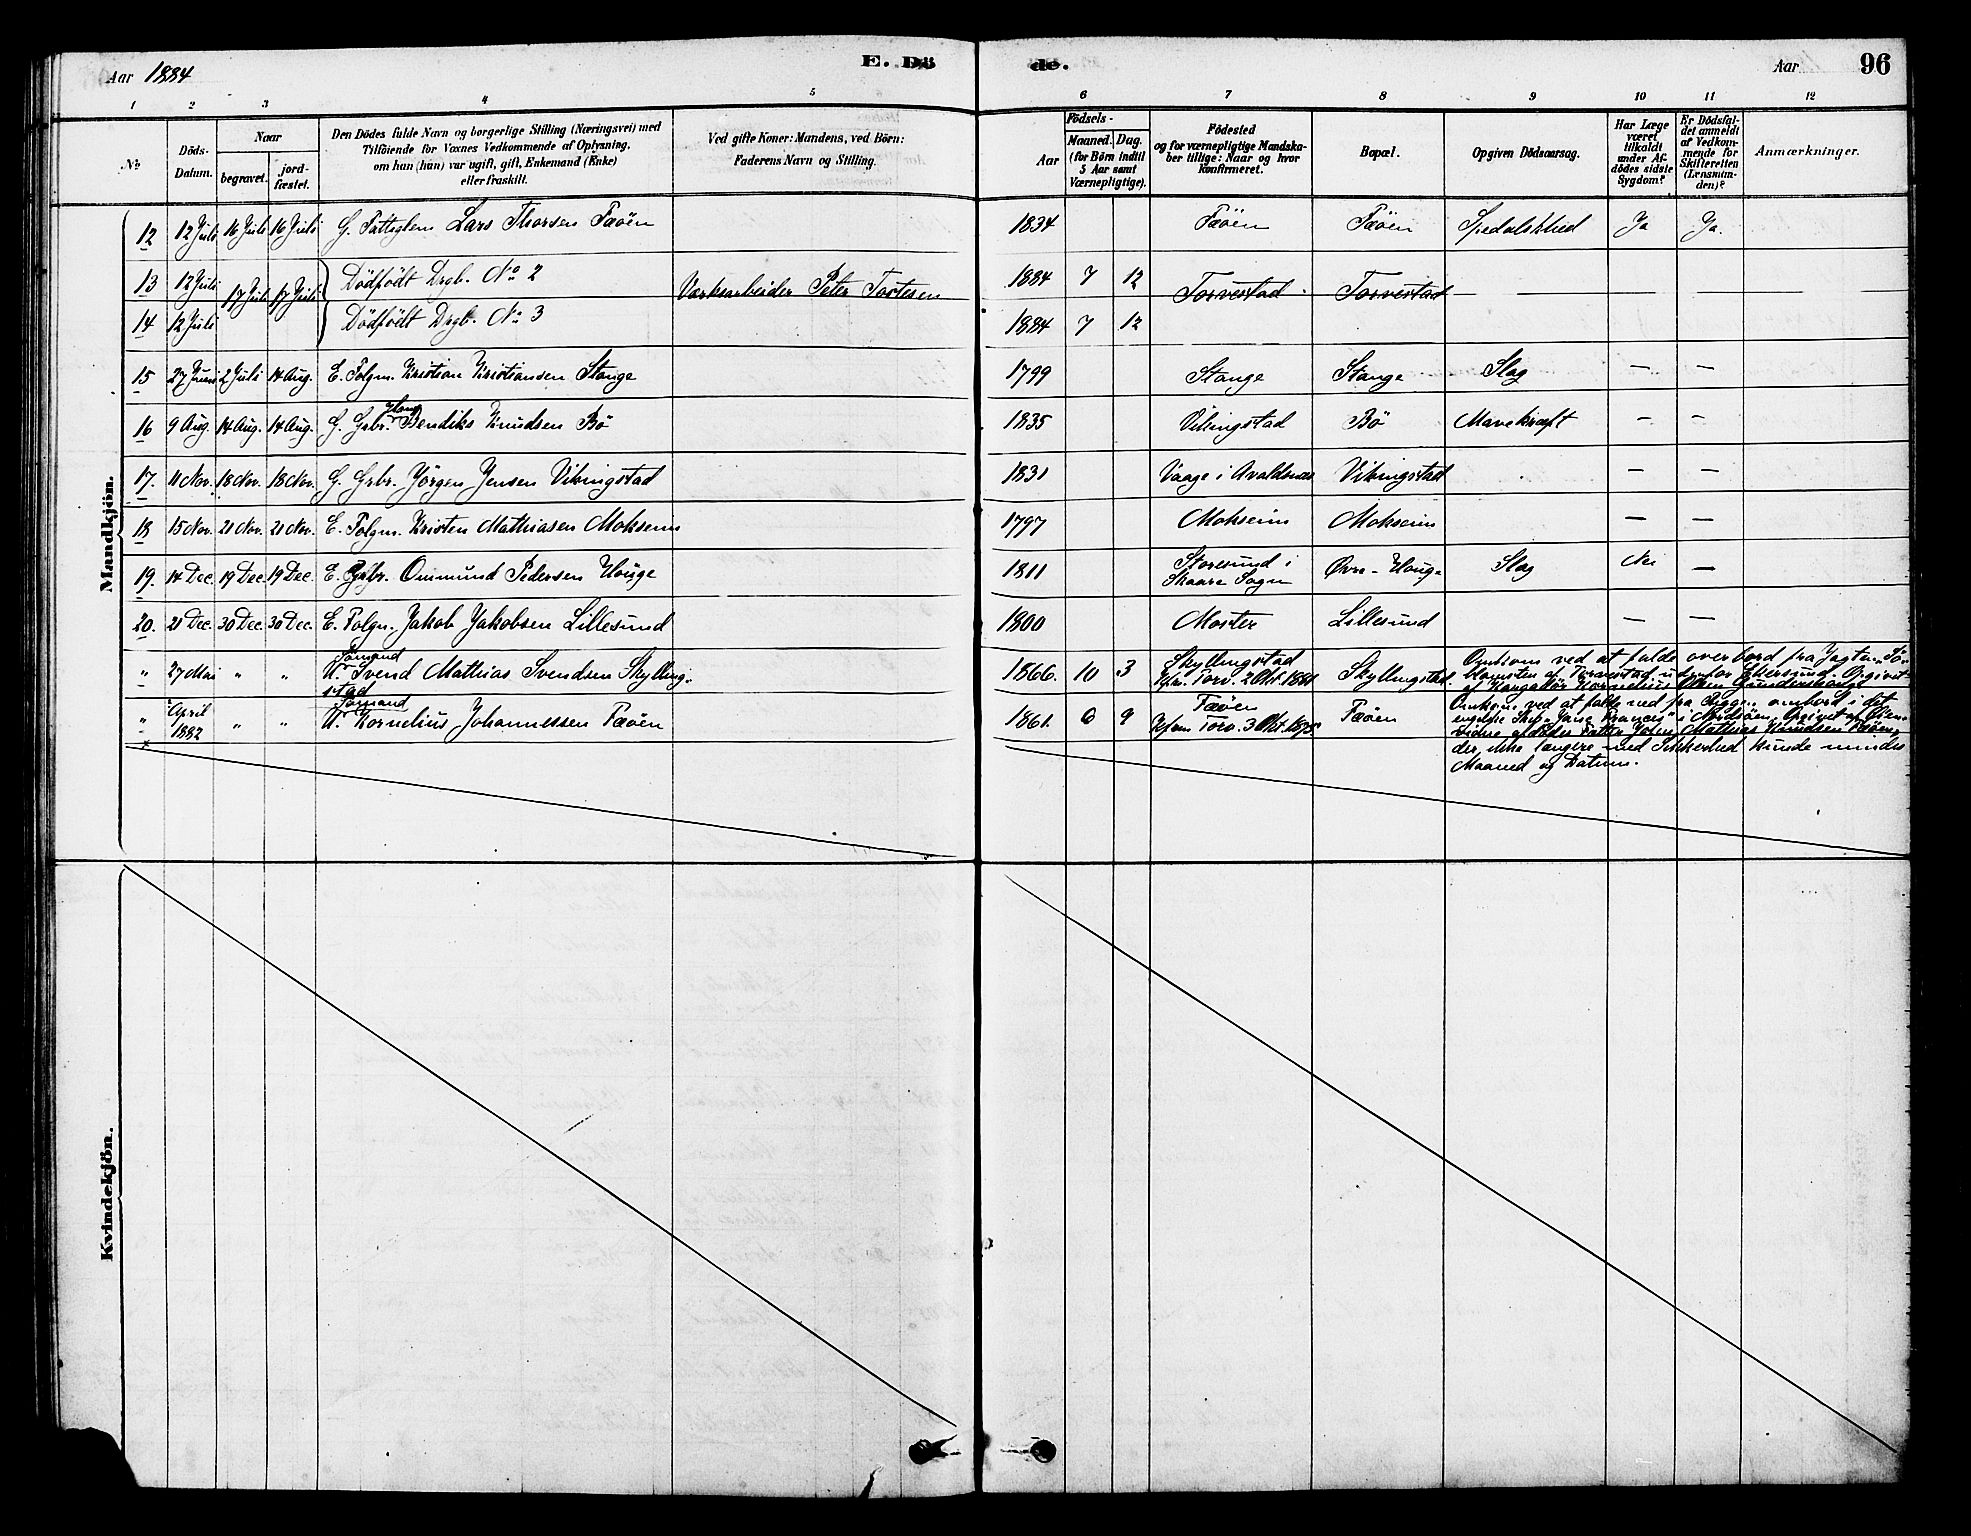 Aar 1884
E. Dö de.
Aar 96
1 2 3 4 5 6 7 8 9 10 11 12
No
Döds-Datum.
Naar
begravet.
jord-fæstet.
Den Dödes fulde Navn og borgerlige Stilling (Næringsvei) med
Tilföiende for Voxnes Vedkommende af Oplysning,
om han (hun) var ugift, gift, Enkemand (Enke)
eller fraskilt.
Ved gifte Koner: Mandens, ved Börn:
Faderens Navn og Stilling.
Födsels-
Aar
Maaned. Dag.
(for Börn indtil
5 Aar samt
Værnepligtige).
Födested
og for værnepligtige Mandska-
ber tillige: Naar og hvor
konfirmeret.
Bopæl.
Opgiven Dödsaarsag.
Har Læge
været
tilkaldt
under Af-
dödes sidste
Sygdom?
Er Dödsfal-
det anmeldt
af Vedkom-
mende for
Skifteretten
(Lensman-
den)?
Anmærkninger.
Mandkjön.
12 12 Juli 16 Juli 16 Juli G. Fattiglem Lars Thorsen Fæöen 1834 Fæöen Fæöen Spedalskhed Ja Ja.
13 12 Juli 17 Juli 17 Juli Dödfödt Drgb. No 2 Værksarbeider Peter Tostesen 1884 7 12 Torvestad Torvestad — — —
14 12 Juli Dödfödt Drgb. No 3 1884 7 12
15 27 Juni 2 Juli 14 Aug. E. Folgm. Kristian Kristiansen Stange 1799 Stange Stange Slag — —
16 9 Aug. 14 Aug. 14 Aug. G. Grbr. Bendiks Knudsen Bö 1835 Vikingstad Bö Mavekræft — —
17. 11 Nov. 18 Nov. 18 Nov. G. Grbr. Jörgen Jensen Vikingstad 1831 Vaage i Avaldsnæs Vikingstad — —
18 15 Nov. 21 Nov. 21 Nov. E. Folgm. Kristen Mathiasen Mokseim 1797 Mokseim Mokseim — —
19. 14 Dec. 19 Dec. 19 Dec. E. Grbr. Ommund Pedersen Houge 1811 Storesund i Skaare Sogn Övre-Houge Slag Nei —
20. 21 Dec. 30 Dec. 30 Dec. E. Folgm. Jakob Jakobsen Lillesund 1800 Moster Lillesund — —
" 27 Mai " " Sömand
U. Svend Mathias Svendsen Skylling-
stad 1866. 10 3 Skyllingstad
Kfm. Torv. 2 Okt. 1881 Skyllingstad. Omkom ved at falde overbord fra Jagten "Sö-
blomsten" af Torvestad udenfor Ekersund. Opgivet
" April
1882 " " Sömand
U. Kornelius Johannessen Fæöen 1861. 6 9 Fæöen
Kfm Torv. 3 Okt. 1875 Fæöen Omkom ved at falde ned fra Riggen ombord i det
engelske Skib "Jane Frances" i Nordsöen. Opgivet af Öien-
vidne afdödes Fætter Johan Mathias Knudsen Fæöen,
der ikke længere med Sikkerhed kunde mindes
Maaned og Datum.
Kvindekjön.